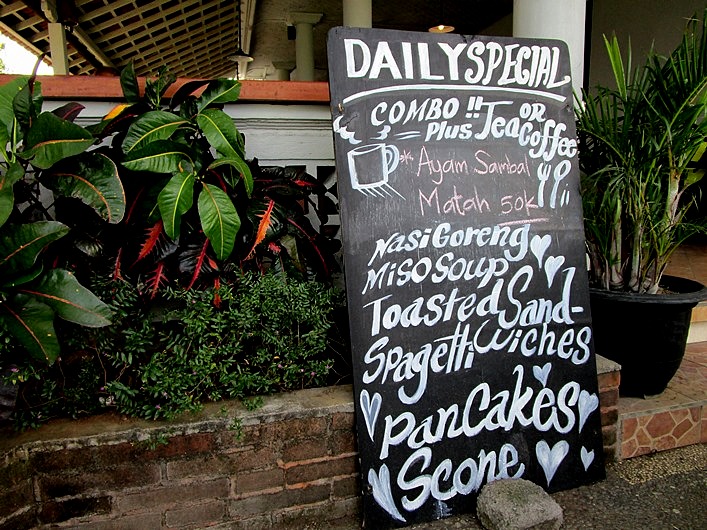 DAILY SPECIAL
COMBO !! OR
Plus. Tea Coffee
Ayam Sambal
Matah 50K
Nasi Goreng
Miso Soup
Toasted Sand-
wiches
Spagetti
Pancakes
Scone